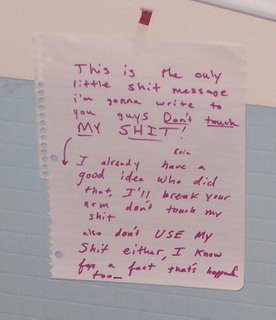 This is the only
little shit message
i'm gonna write to
you guys Don't touch
MY SHIT!
Erin
I already have a
good idea who did
that, I'll break your
arm don't touch my
shit
also don't USE MY
Shit either, I know
for a fact thats happend
too-